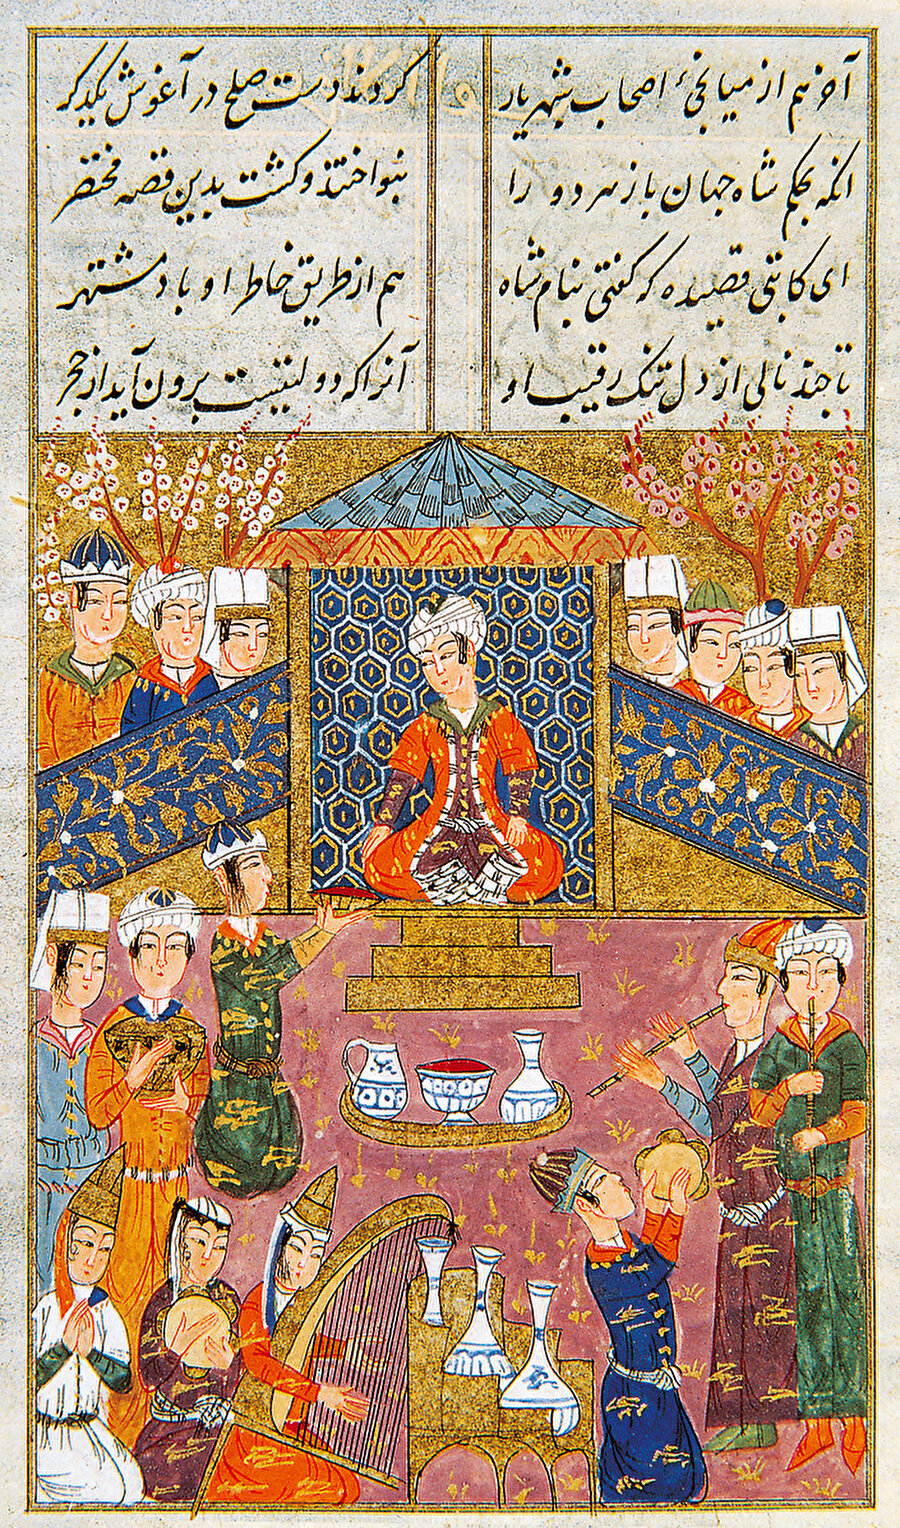 آخر هم از میانجیٔ اصحاب شهریار کردند دست صلح در آغوش یکدگر
انکه بحکم شاه جهان باز هر دو را بنواختند و کشت بدین قصه مختصر
ای کاتبی قصیده که گفتی بنام شاه هم از طریق خاطر او باد مشتهر
تا چند نالی از دل تنک رقیب او آنرا که دولتیست برون آید از حجر